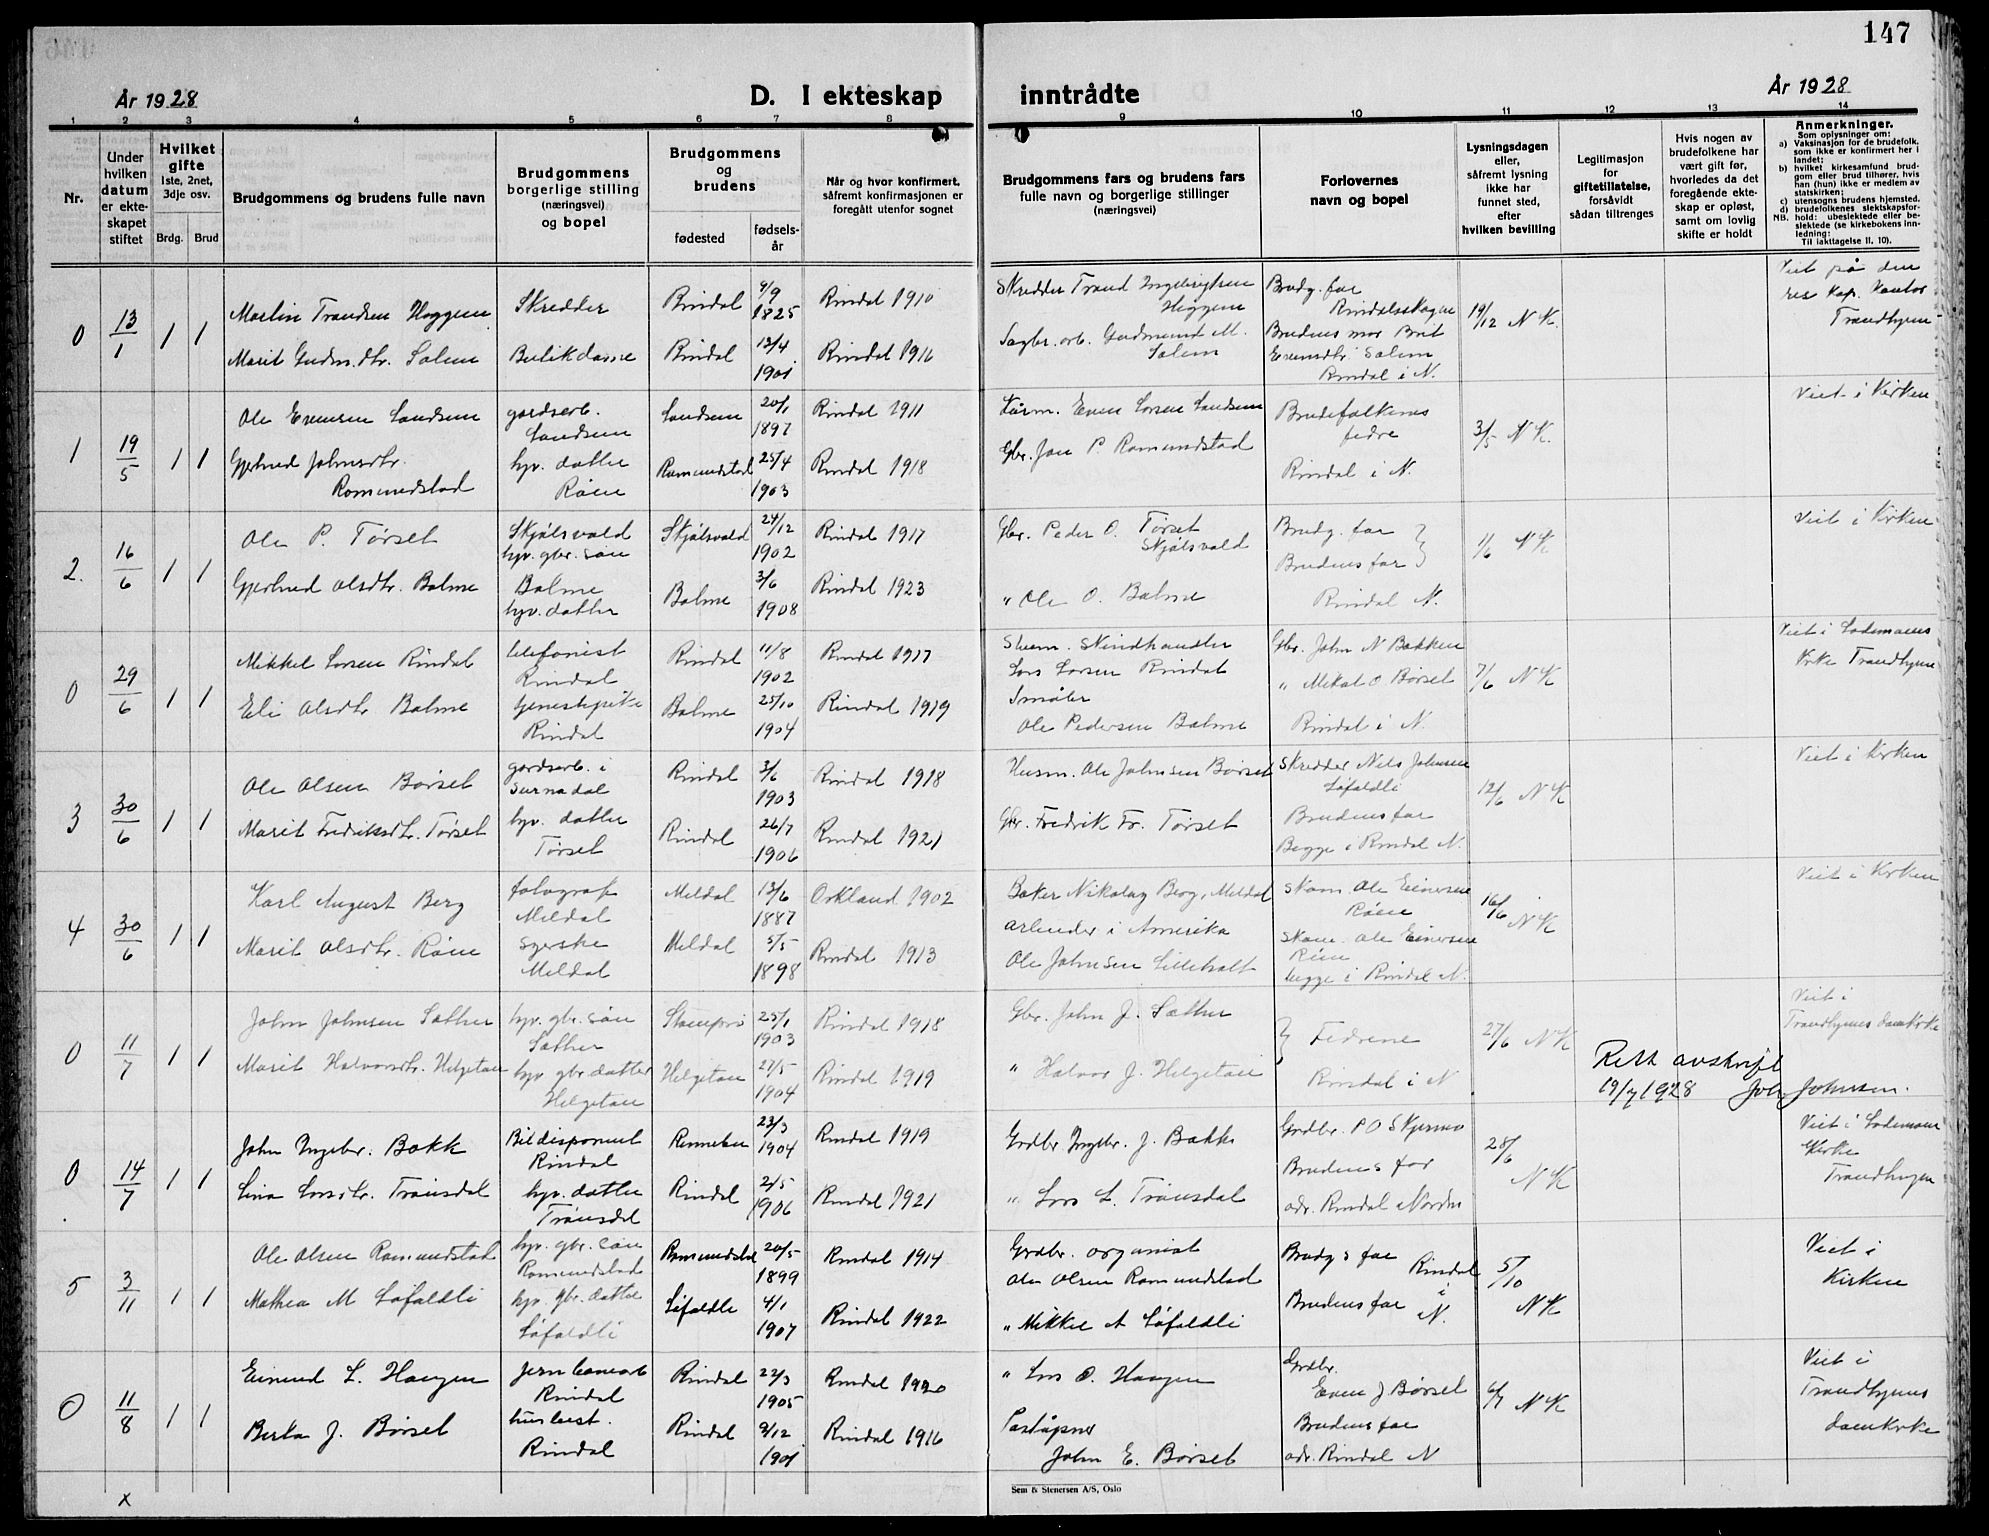 147
År 1928
D. I ekteskap inntrådte
År 1928
1 2 3 4 5 6 7 8 9 10 11 12 13 14
Nr.
Under hvilken datum er ekteskapet stiftet
Hvilket gifte
1ste, 2net, 3dje osv.
Brdg. Brud
Brudgommens og brudens fulle navn
Brudgommens borgerlige stilling (næringsvei) og bopel
Brudgommens og brudens
fødested
fødselsår
Når og hvor konfirmert, såfremt konfirmasjonen er foregått utenfor sognet
Brudgommens fars og brudens fars fulle navn og borgerlige stillinger (næringsvei)
Forlovernes navn og bopel
Lysningsdagen eller, såfremt lysning ikke har funnet sted, efter hvilken bevilling
Legitimasjon for giftetillatelse, forsåvidt sådan tiltrenges
Hvis nogen av brudefolkene har vært gift før, hvorledes da det foregående ekteskap er opløst, samt om lovlig skifte er holdt
Anmerkninger.
Som oplysninger om:
a) Vaksinasjon for de brudefolk, som ikke er konfirmert her i landet;
b) hvilket kirkesamfund brudgom eller brud tilhører, hvis han (hun) ikke er medlem av statskirken;
c) utensogns brudens hjemsted.
d) brudefolkenes slektskapsforhold: ubeslektede eller beslektede (se kirkebokens innledning:
NB.
Til iakttagelse II. 10).
0 13/1 1 1
Martin Trondsen Heggem Skredder Rindal 9/9 1825 Rindal 1910
Skredder Trond Ingebrigtsen Heggem
Brudg. far Rindalsskogen
19/12 N.K.
Viet på den res. kap. kontor Trondhjem
Marit Gudm.dtr. Solem Butikdame Rindal 12/4 1901 Rindal 1916
Sagbr. arb. Gudmund M. Solem
Brudens mor Brit Evensdtr Solem
Rindal i N.
1 19/5 1 1
Ole Evensen Landsem gardsarb. Landsem Landsem 20/1 1897 Rindal 1911
Kårm. Even Larsen Landsem
Brudefolkenes fedre
3/5 N.K.
Viet i Kirken
Gjertrud Johnsdtr. Romundstad hjv. datter Røen Romundstad 25/4 1903 Rindal 1918
Gbr. Jon P. Romundstad
Rindal i N.
2. 16/6 1 1
Ole P. Tørset Skjølsvold hjv. gbr. søn Skjølsvold 24/12 1902 Rindal 1917
Gbr. Peder O. Tørset Skjølsvold
Brudg. far
Brudens far
1/6 N K
Viet i Kirken
Gjertrud Olsdtr. Bolme Bolme hjv. datter Bolme 3/6 1908 Rindal 1923
" Ole O. Bolme
Rindal N.
0 29/6 1 1
Mikkel Larsen Rindal telefonist Rindal Rindal 11/8 1902 Rindal 1917
Skindhandler Lars Larsen Rindal
Gbr. John N Bakken
" Mikal O Børset
7/6 N K
Viet i Lademoens Kirke Trondhjem
Eli Olsdtr Bolme tjenestepike Rindal Bolme 25/10 1904 Rindal 1919
Småbr Ole Pedersen Bolme
Rindal i N.
3 30/6 1 1
Ole Olsen Børset gardsarb. i Surnadal Rindal 3/6 1903 Rindal 1918
Husm. Ole Johnsen Børset
Skredder Nils Johnsen Løfaldli
12/6 N K
Viet i Kirken
Marit Fredriksdtr. Tørset hjv. datter Tørset Rindal 26/7 1906 Rindal 1921
Gbr. Fredrik Fr. Tørset
Brudens far
Begge i Rindal N.
4 30/6 1 1
Karl August Berg fotograf Meldal Meldal 13/6 1887 Orkland 1902
Baker Nikolay Berg, Meldal
Skom. Ole Einersen Røen
16/6 N K
Viet i Kirken
Marit Olsdtr. Røen syerske Meldal Meldal 5/5 1898 Rindal 1913
arbeider i Amerika
Ole Johnsen Lilleholt
Skom. Ole Einersen Røen
begge i Rindal N.
0 11/7 1 1
John Johnsen Sæther hjv. gbr. søn Sæther 25/1 1903 Rindal 1918
Gbr. John J. Sæther
Fedrene
27/6 N K
Viet i Trondhjems domkirke
Marit Halvorsdtr. Helgetun hjv gbr datter Helgetun Helgetun 27/5 1904 Rindal 1919
" Halvor J. Helgetun
Rindal i N
Rett avskrift
19/7 1928 John Johnsen.
0 14/7 1 1
John Ingebr. Bakk Bildisponent Rindal Rennebu 23/3 1904 Rindal 1919
Grdbr Ingebr. J. Bakk
Grdbr. P O Skjermo
28/6 N K
Viet i Lademoen Kirke Trondhjem
Lina Larsdtr. Trønsdal hjv. datter Trønsdal Rindal 2/5 1906 Rindal 1921
" Lars L. Trønsdal
Brudens far
adr. Rindal Nordm
5 3/11 1 1
Ole Olsen Romundstad hjv. gbr. søn Romundstad Romundstad 20/5 1899 Rindal 1914
Grdbr. organist Ole Olsen Romundstad
Brudg s far Rindal i N.
5/10 N K
Viet i Kirken
Mathea M Løfaldli hjv. gbr. datter Løfaldli Løfaldli 4/1 1907 Rindal 1922
" Mikkel A Løfaldli
Brudens far
0 11/8 1 1
Eivind L. Haugen Rindal Rindal 22/3 1905 Rindal 1920
" Lars O. Haugen
Grdbr. Even J. Børset
6/7 N K
Viet i Trondhjems domkirke
Berta J. Børset Rindal Rindal 9/12 1901 Rindal 1916
Poståpner John E. Børset
Brudens far
adr. Rindal N
x
Sem & Stenersen A/S, Oslo